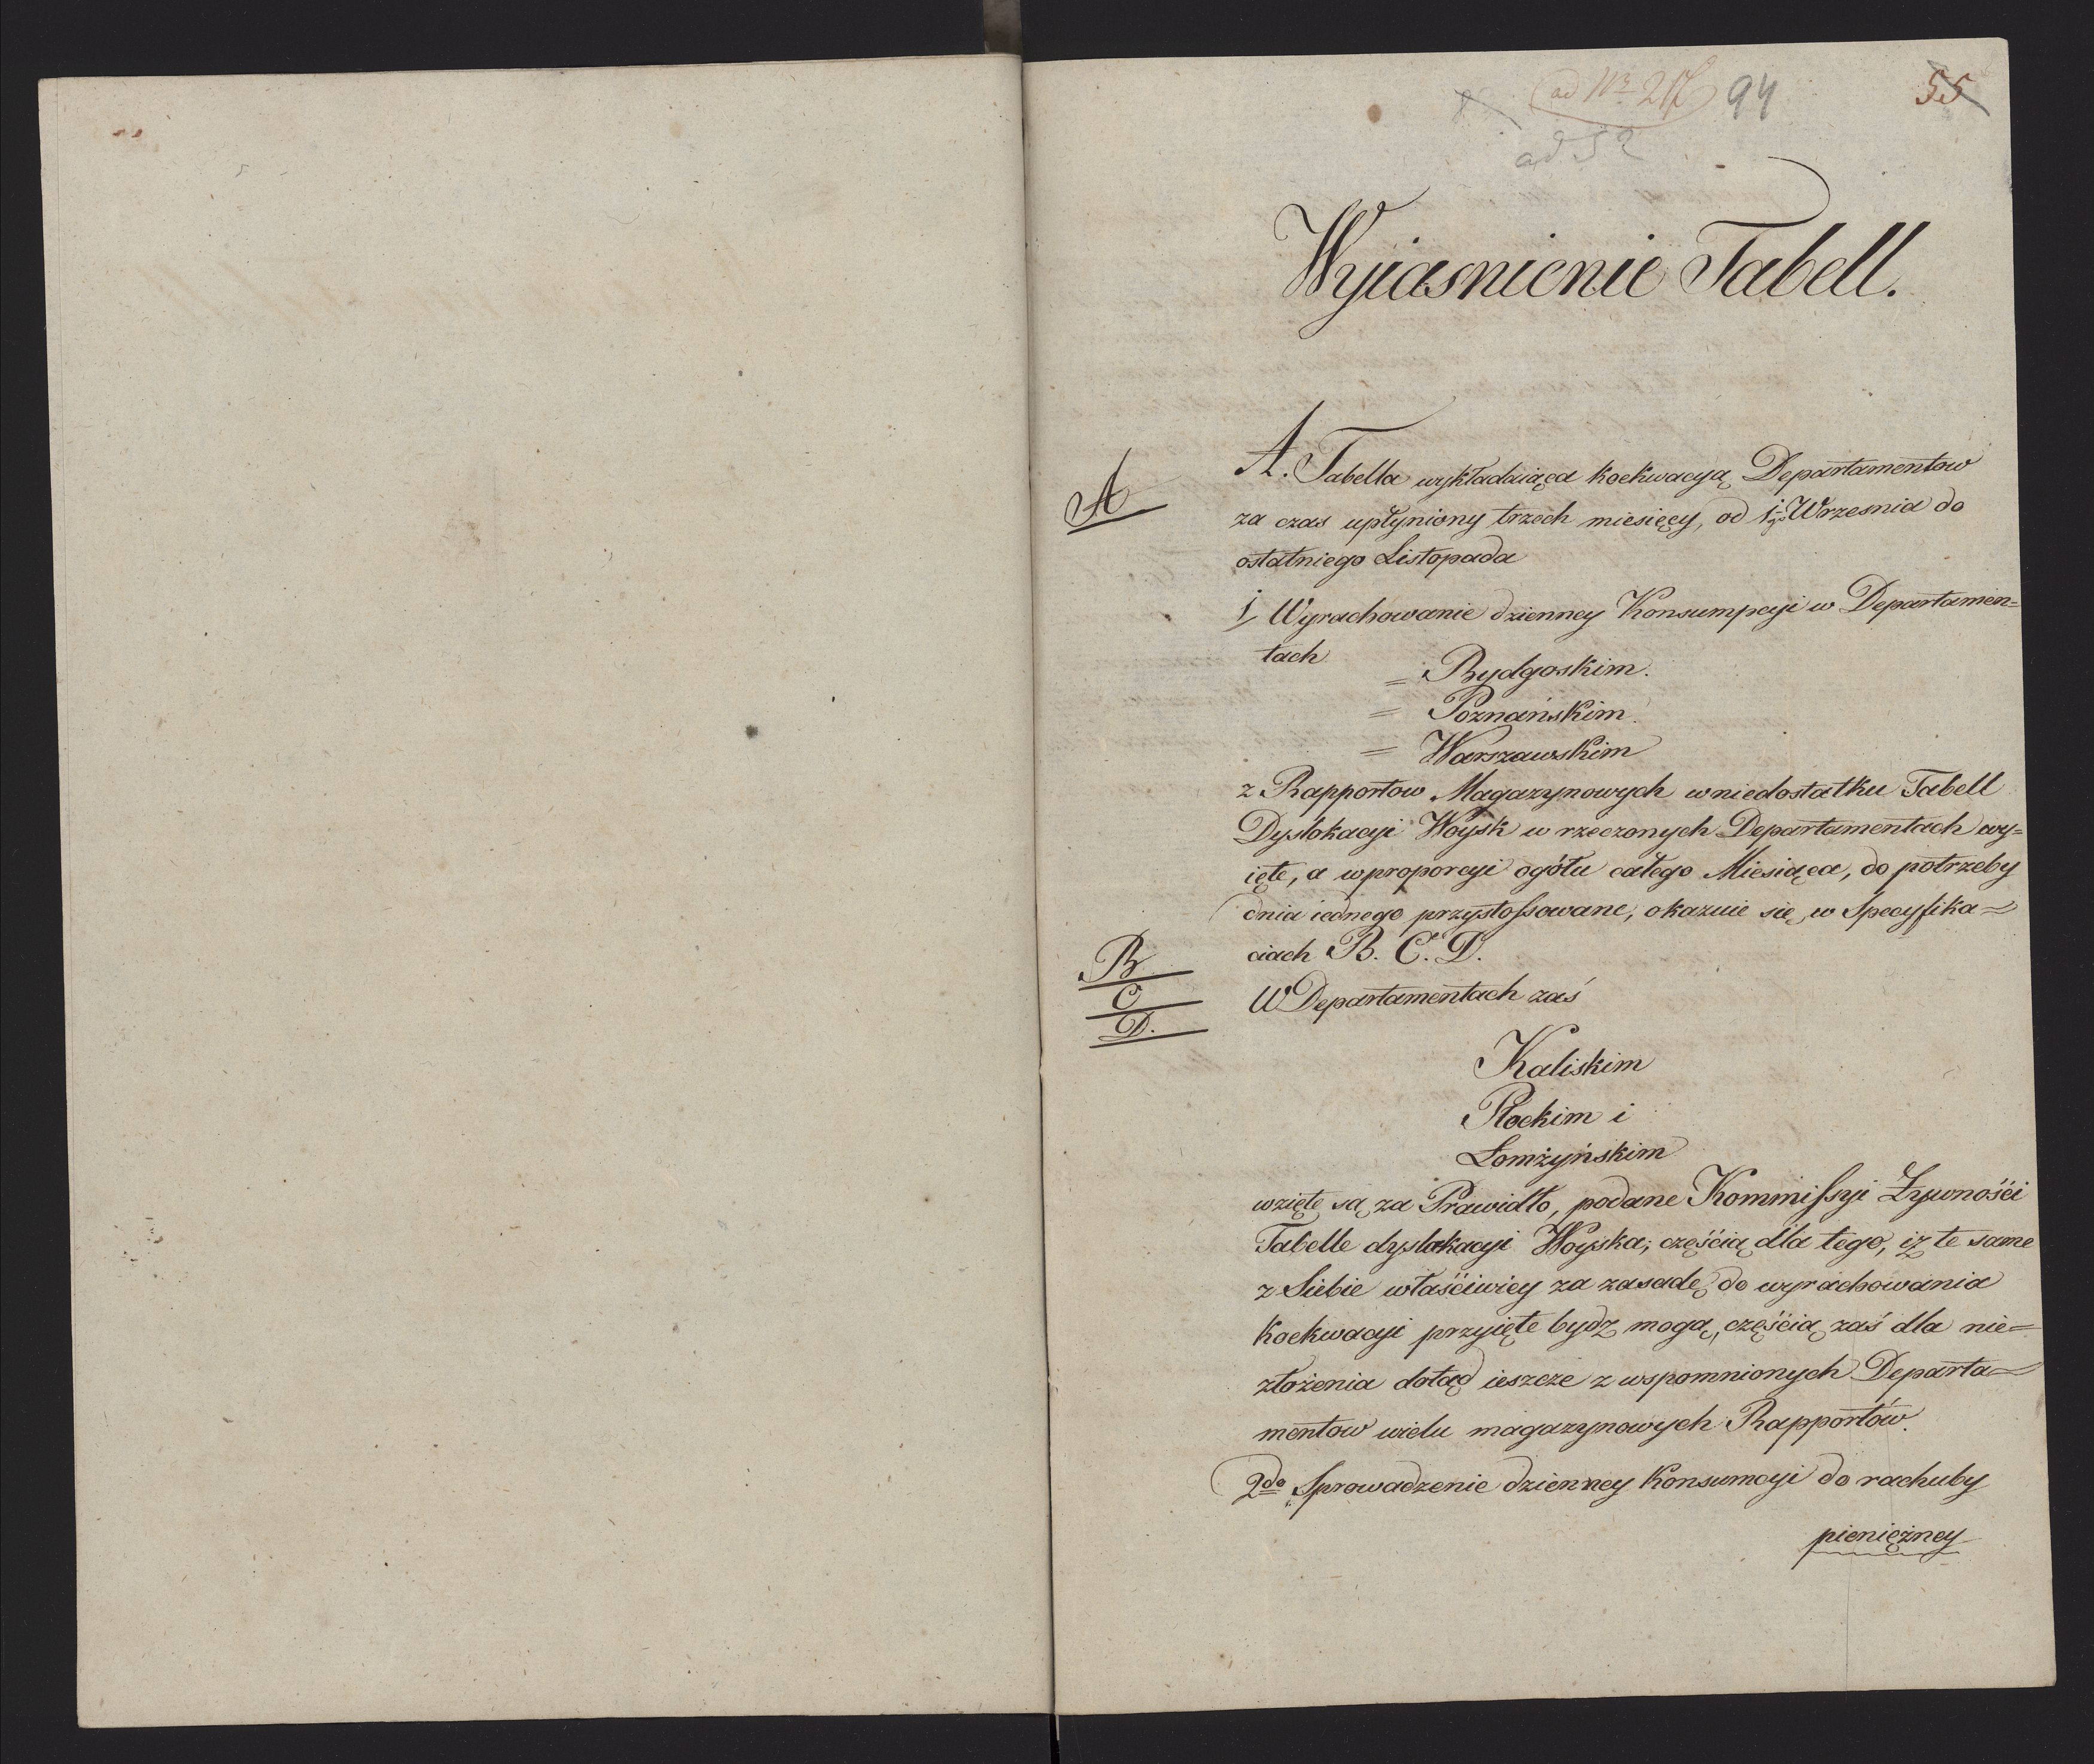 ad Nr 217 94 55
ad 52
Wyiasnienie Tabell.
A
A. Tabella wykładaiąca koekwacyą Departamentow
za czas upłyniony trzech miesięcy, od 1go Wrzesnia do
ostatniego Listopada
1/ Wyrachowanie dzienney Konsumpcyi w Departamen=
tach
= Bydgoskim.
= Poznańskim.
= Warszawskim
z Rapportow Magazynowych w niedostatku Tabell
Dyslokacyi Woysk w rzeczonych Departamentach wy=
ięte, a w proporcyi ogółu całego Miesiąca, do potrzeby
dnia iednego przystossowane, okazuie się w Specyfika=
ciach B. C. D.
B
C
D.
W Departamentach zaś
Kaliskim
Płockim i
Łomżyńskim
wzięte są za Prawidło, podane Kommissyi Żywnośći
Tabelle dyslokacyi Woyska; częśćią dla tego, iż te same
z Siebie właśćiwiey za zasadę do wyrachowania
koekwacyi przyięte bydz mogą, częśćią zaś dla nie=
złożenia dotąd ieszcze z wspomnionych Departa=
mentow wielu magazynowych Rapportów.
2do Sprowadzenie dzienney Konsumcyi do rachuby
pieniężney